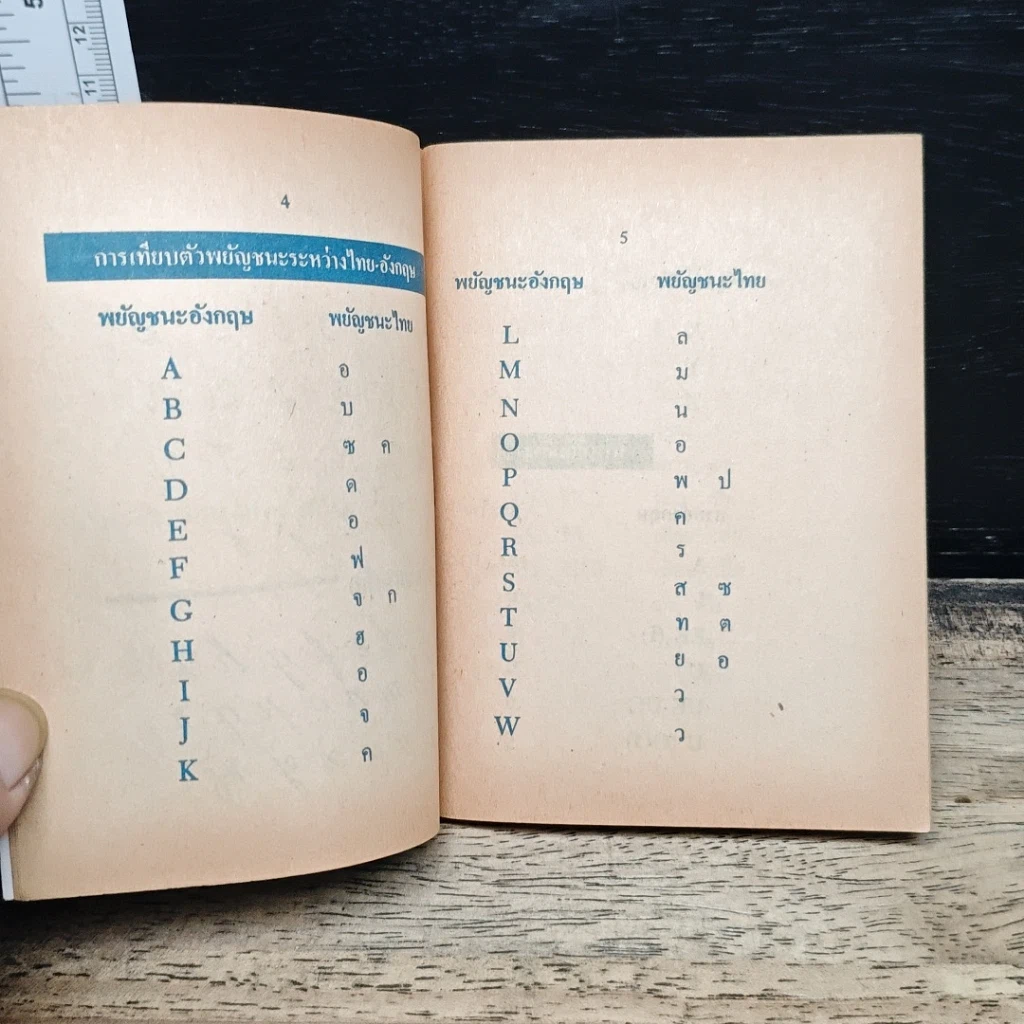 5
12
11
4
การเทียบตัวพยัญชนะระหว่างไทย-อังกฤษ
พยัญชนะอังกฤษ พยัญชนะไทย
A อ
B บ
C ซ ค
D ด
E อ
F ฟ
G จ ก
H ฮ
I อ
J จ
K ค
5
พยัญชนะอังกฤษ พยัญชนะไทย
L ล
M ม
N น
O อ
P พ ป
Q ค
R ร
S ส ซ
T ท ต
U ย อ
V ว
W ว